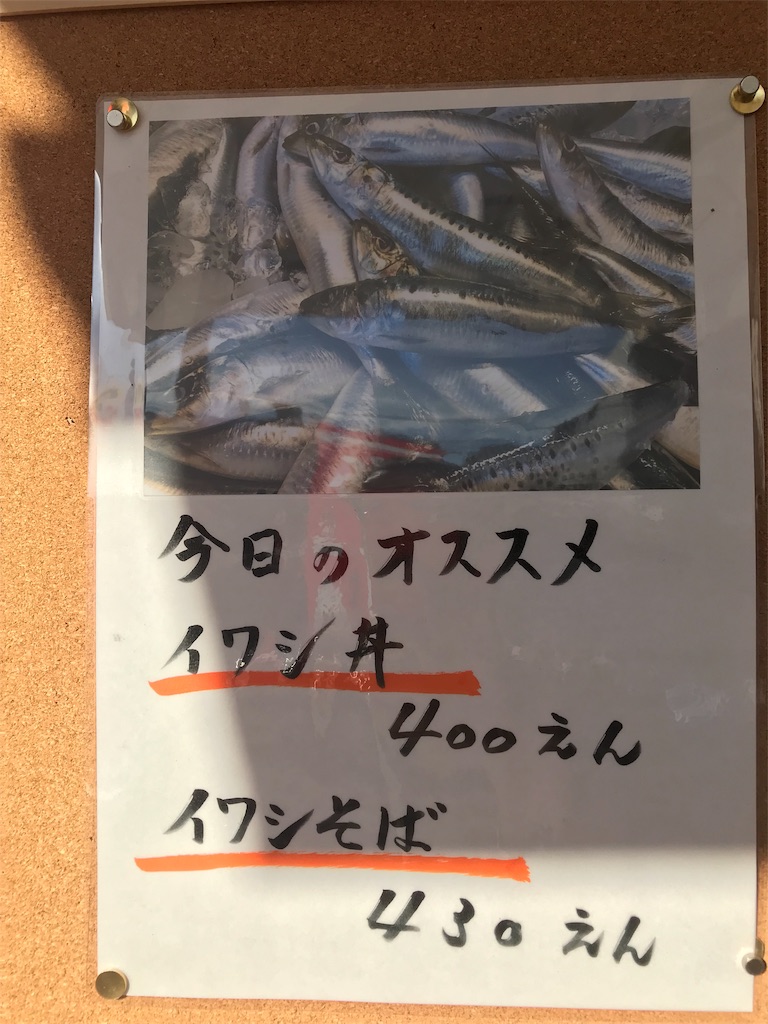 今日のオススメ
イワシ丼
400えん
イワシそば
430えん